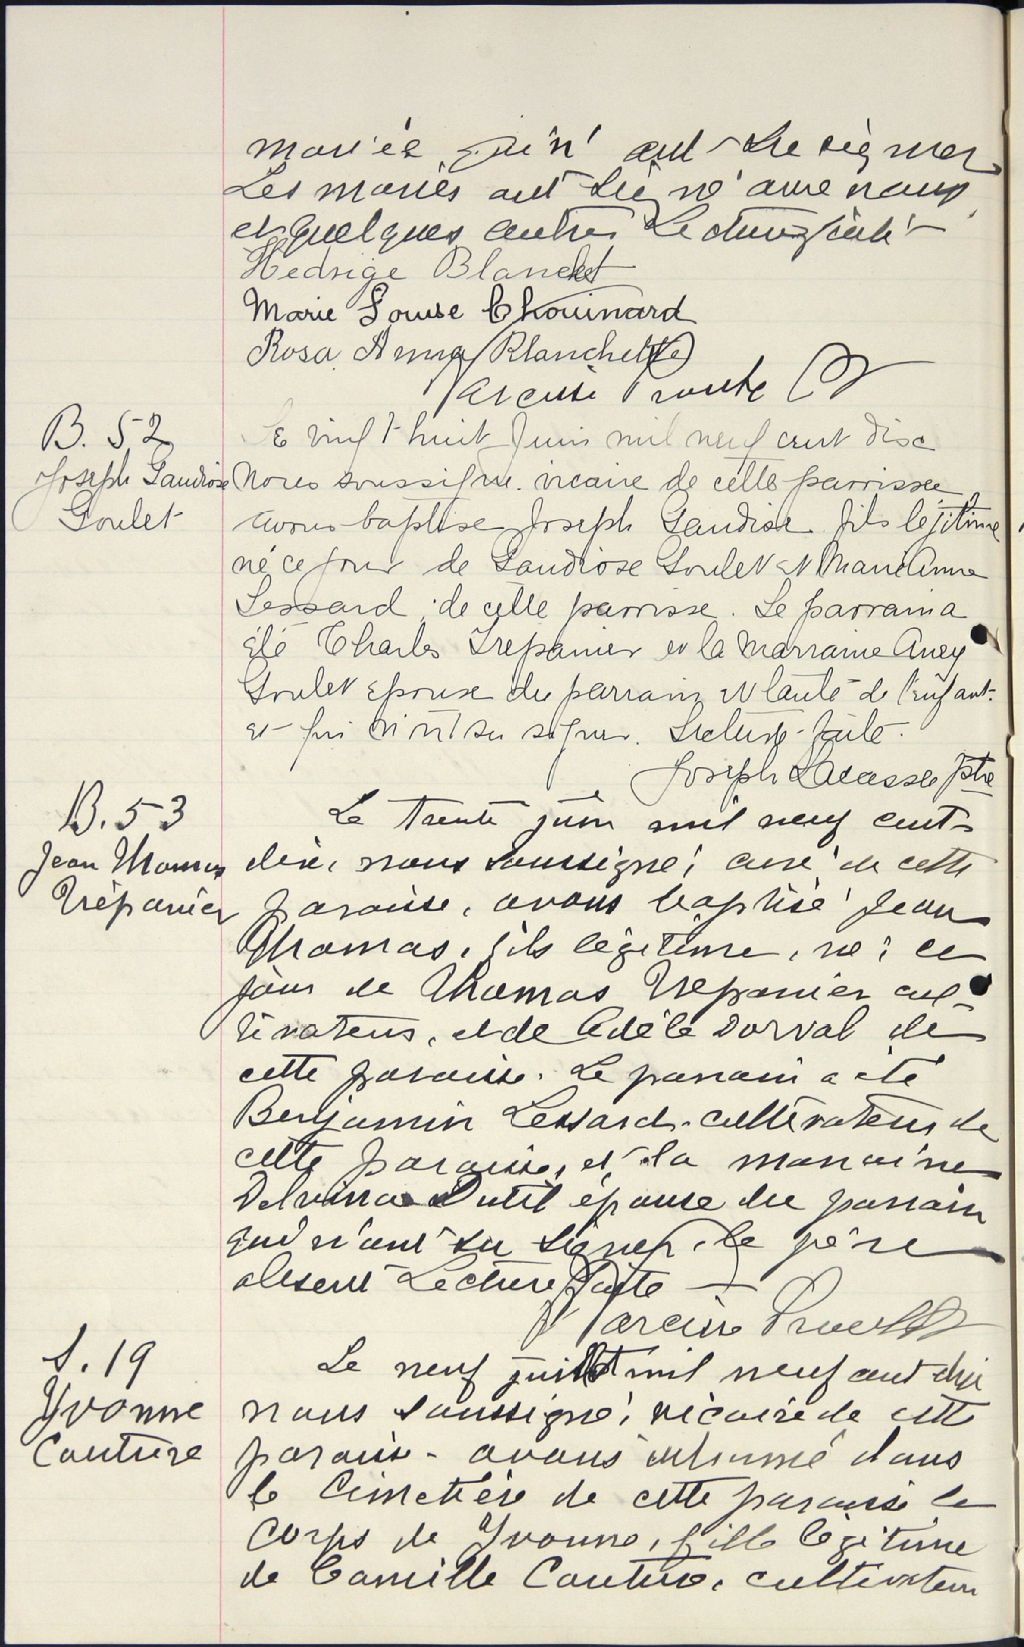 mariée qui n'ont su signer
Les mariés ont signé avec nous
et quelques autres Lecture faite
Hedwige Blanchet
Marie Louise Chouinard
Rosa Anna Blanchette
Narcisse Proulx Ptr
B. 52
Joseph Gaudiose
Goulet
Le vingt huit Juin mil neuf cent dix
Nous soussigné vicaire de cette paroisse
avons baptisé Joseph Gaudiose fils légitime
né ce jour de Gaudiose Goulet et Marie Anne
Lessard de cette paroisse. Le parrain a
été Charles Trepanier et la Marraine
Goulet epouse du parrain et tante de l'enfant
et qui n'ont su signer. Lecture faite.
Joseph Lacasse ptre
B. 53
Jean Thomas
Trépanier
Le trente juin mil neuf cent
dix, nous soussigné, curé de cette
paroisse, avons baptisé Jean
Thomas, fils légitime, né ce
jour de Thomas Trepanier cul-
tivateur, et de Adèle Dorval de
cette paroisse. Le parrain a été
Benjamin Lessard, cultivateur de
cette paroisse, et la marraine
Delvina Dutil épouse du parrain
qui n'ont su signer, le père
absent Lecture faite
Narcisse Proulx Ptr
S. 19
Yvonne
Couture
Le neuf juillet mil neuf cent dix
nous soussigné, vicaire de cette
paroisse - avons inhumé dans
le Cimetière de cette paroisse le
corps de Yvonne, fille légitime
de Camille Couture, cultivateur